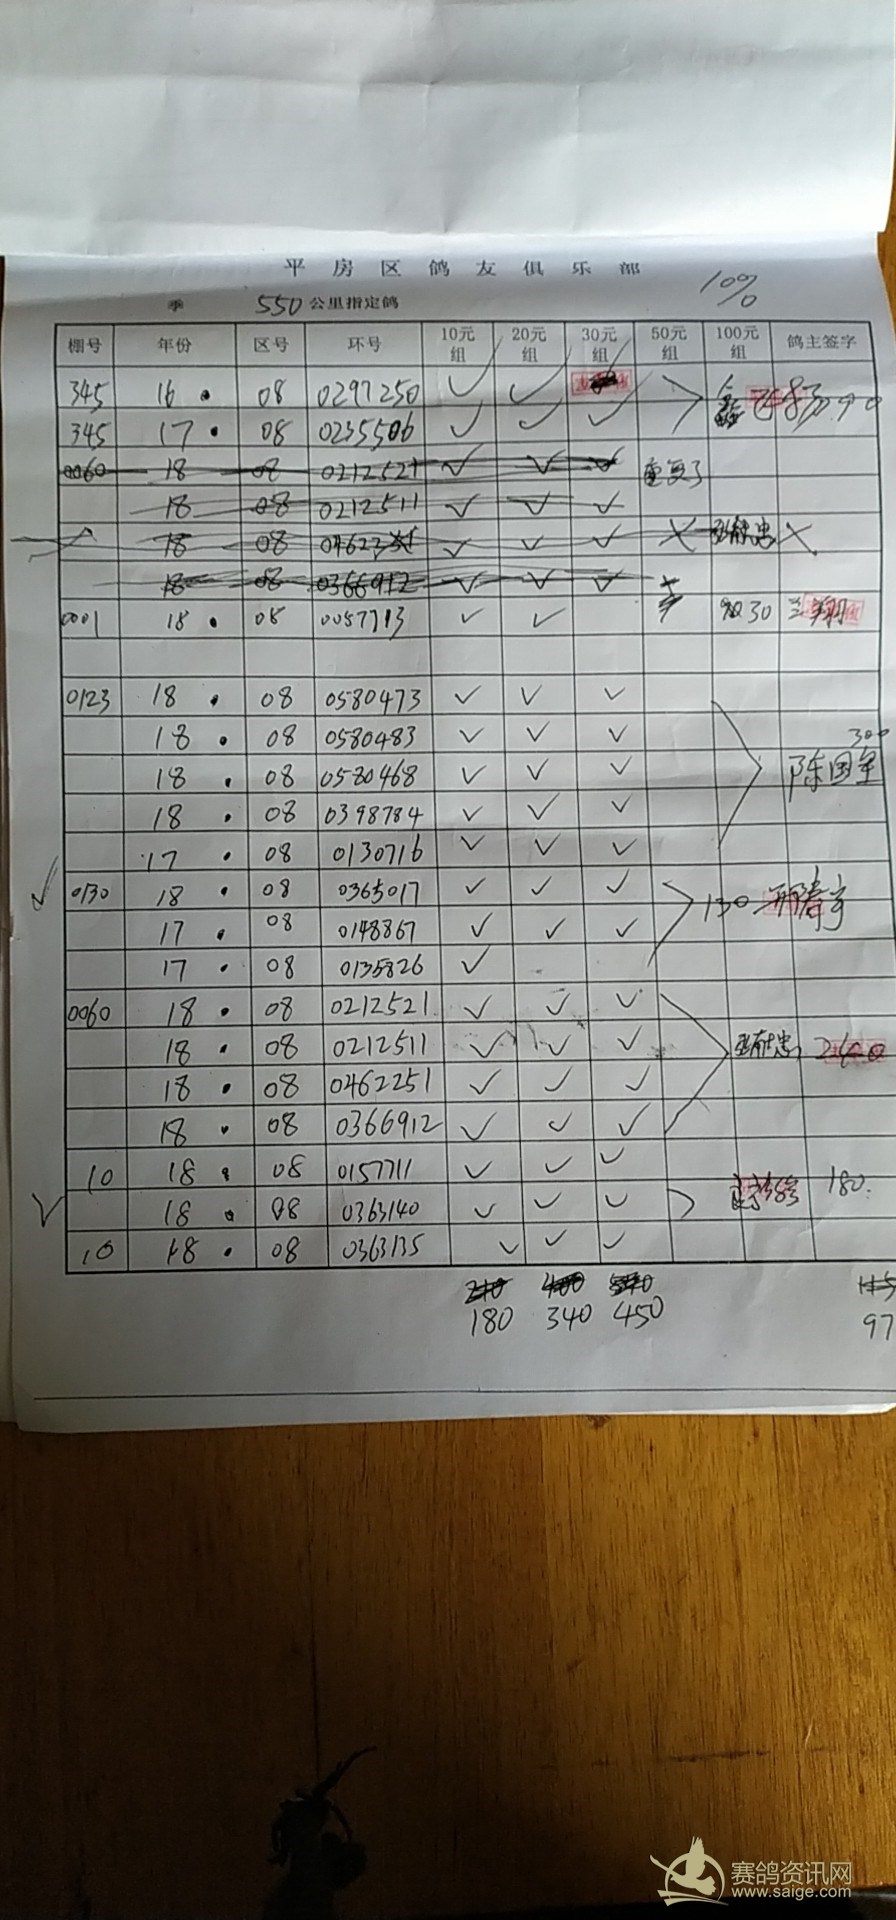 平房区鸽友俱乐部
10%
季 550公里指定鸽
棚号 年份 区号 环号 10元组 20元组 30元组 50元组 100元组 鸽主签字
345 16 · 08 0297250 ✓ ✓
345 17 · 08 0235506 ✓ ✓ ✓ 90
0060 18 08 0212521 ✓ ✓ ✓ 重复了
18 08 0212511 ✓ ✓ ✓
18 08 ✓ ✓ ✓ ✗ ✗
18 08 0366912 ✓ ✓ ✓
0001 18 · 08 0057713 ✓ ✓ 30
0123 18 · 08 0580473 ✓ ✓ ✓
18 · 08 0580483 ✓ ✓ ✓ 300
18 · 08 0580468 ✓ ✓ ✓ 陈国军
18 · 08 0398784 ✓ ✓ ✓
17 · 08 0130716 ✓ ✓ ✓
✓ 0130 18 · 08 0365017 ✓ ✓ ✓ 130
17 · 08 0148867 ✓ ✓ ✓
17 · 08 0135826 ✓
0060 18 · 08 0212521 ✓ ✓ ✓
18 · 08 0212511 ✓ ✓ ✓ 240
18 · 08 0462251 ✓ ✓ ✓
18 · 08 0366912 ✓ ✓ ✓
10 18 · 08 0157711 ✓ ✓ ✓
✓ 18 · 08 0363140 ✓ ✓ ✓ 180
10 18 · 08 0363135 ✓ ✓ ✓
180 340 450 97
赛鸽资讯网
www.saige.com